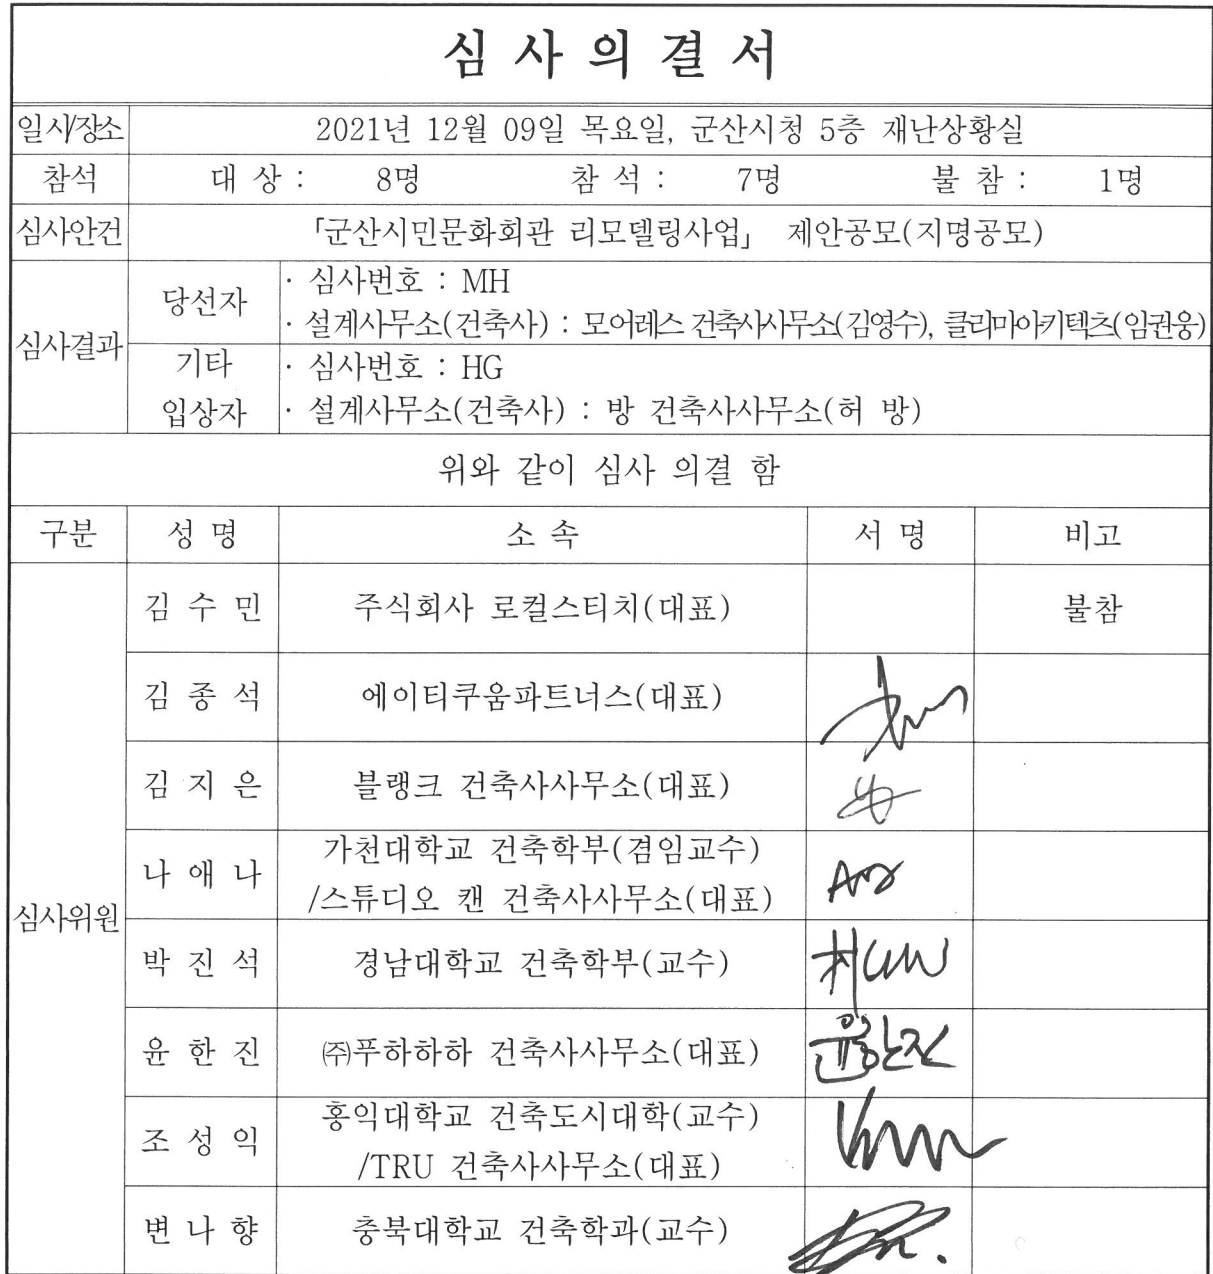 심 사 의 결 서
일시/장소 2021년 12월 09일 목요일, 군산시청 5층 재난상황실
참석 대 상 : 8명 참 석 : 7명 불 참 : 1명
심사안건 「군산시민문화회관 리모델링사업」 제안공모(지명공모)
심사결과
당선자
· 심사번호 : MH
· 설계사무소(건축사) : 모어레스 건축사사무소(김영수), 클리마아키텍츠(임권웅)
기타
입상자
· 심사번호 : HG
· 설계사무소(건축사) : 방 건축사사무소(허 방)
위와 같이 심사 의결 함
구분 성 명 소 속 서 명 비고
심사위원
김 수 민 주식회사 로컬스티치(대표) 불참
김 종 석 에이티쿠움파트너스(대표)
김 지 은 블랭크 건축사사무소(대표)
나 애 나
가천대학교 건축학부(겸임교수)
/스튜디오 캔 건축사사무소(대표)
박 진 석 경남대학교 건축학부(교수)
윤 한 진 ㈜푸하하하 건축사사무소(대표) 윤한진
조 성 익
홍익대학교 건축도시대학(교수)
/TRU 건축사사무소(대표)
변 나 향 충북대학교 건축학과(교수)